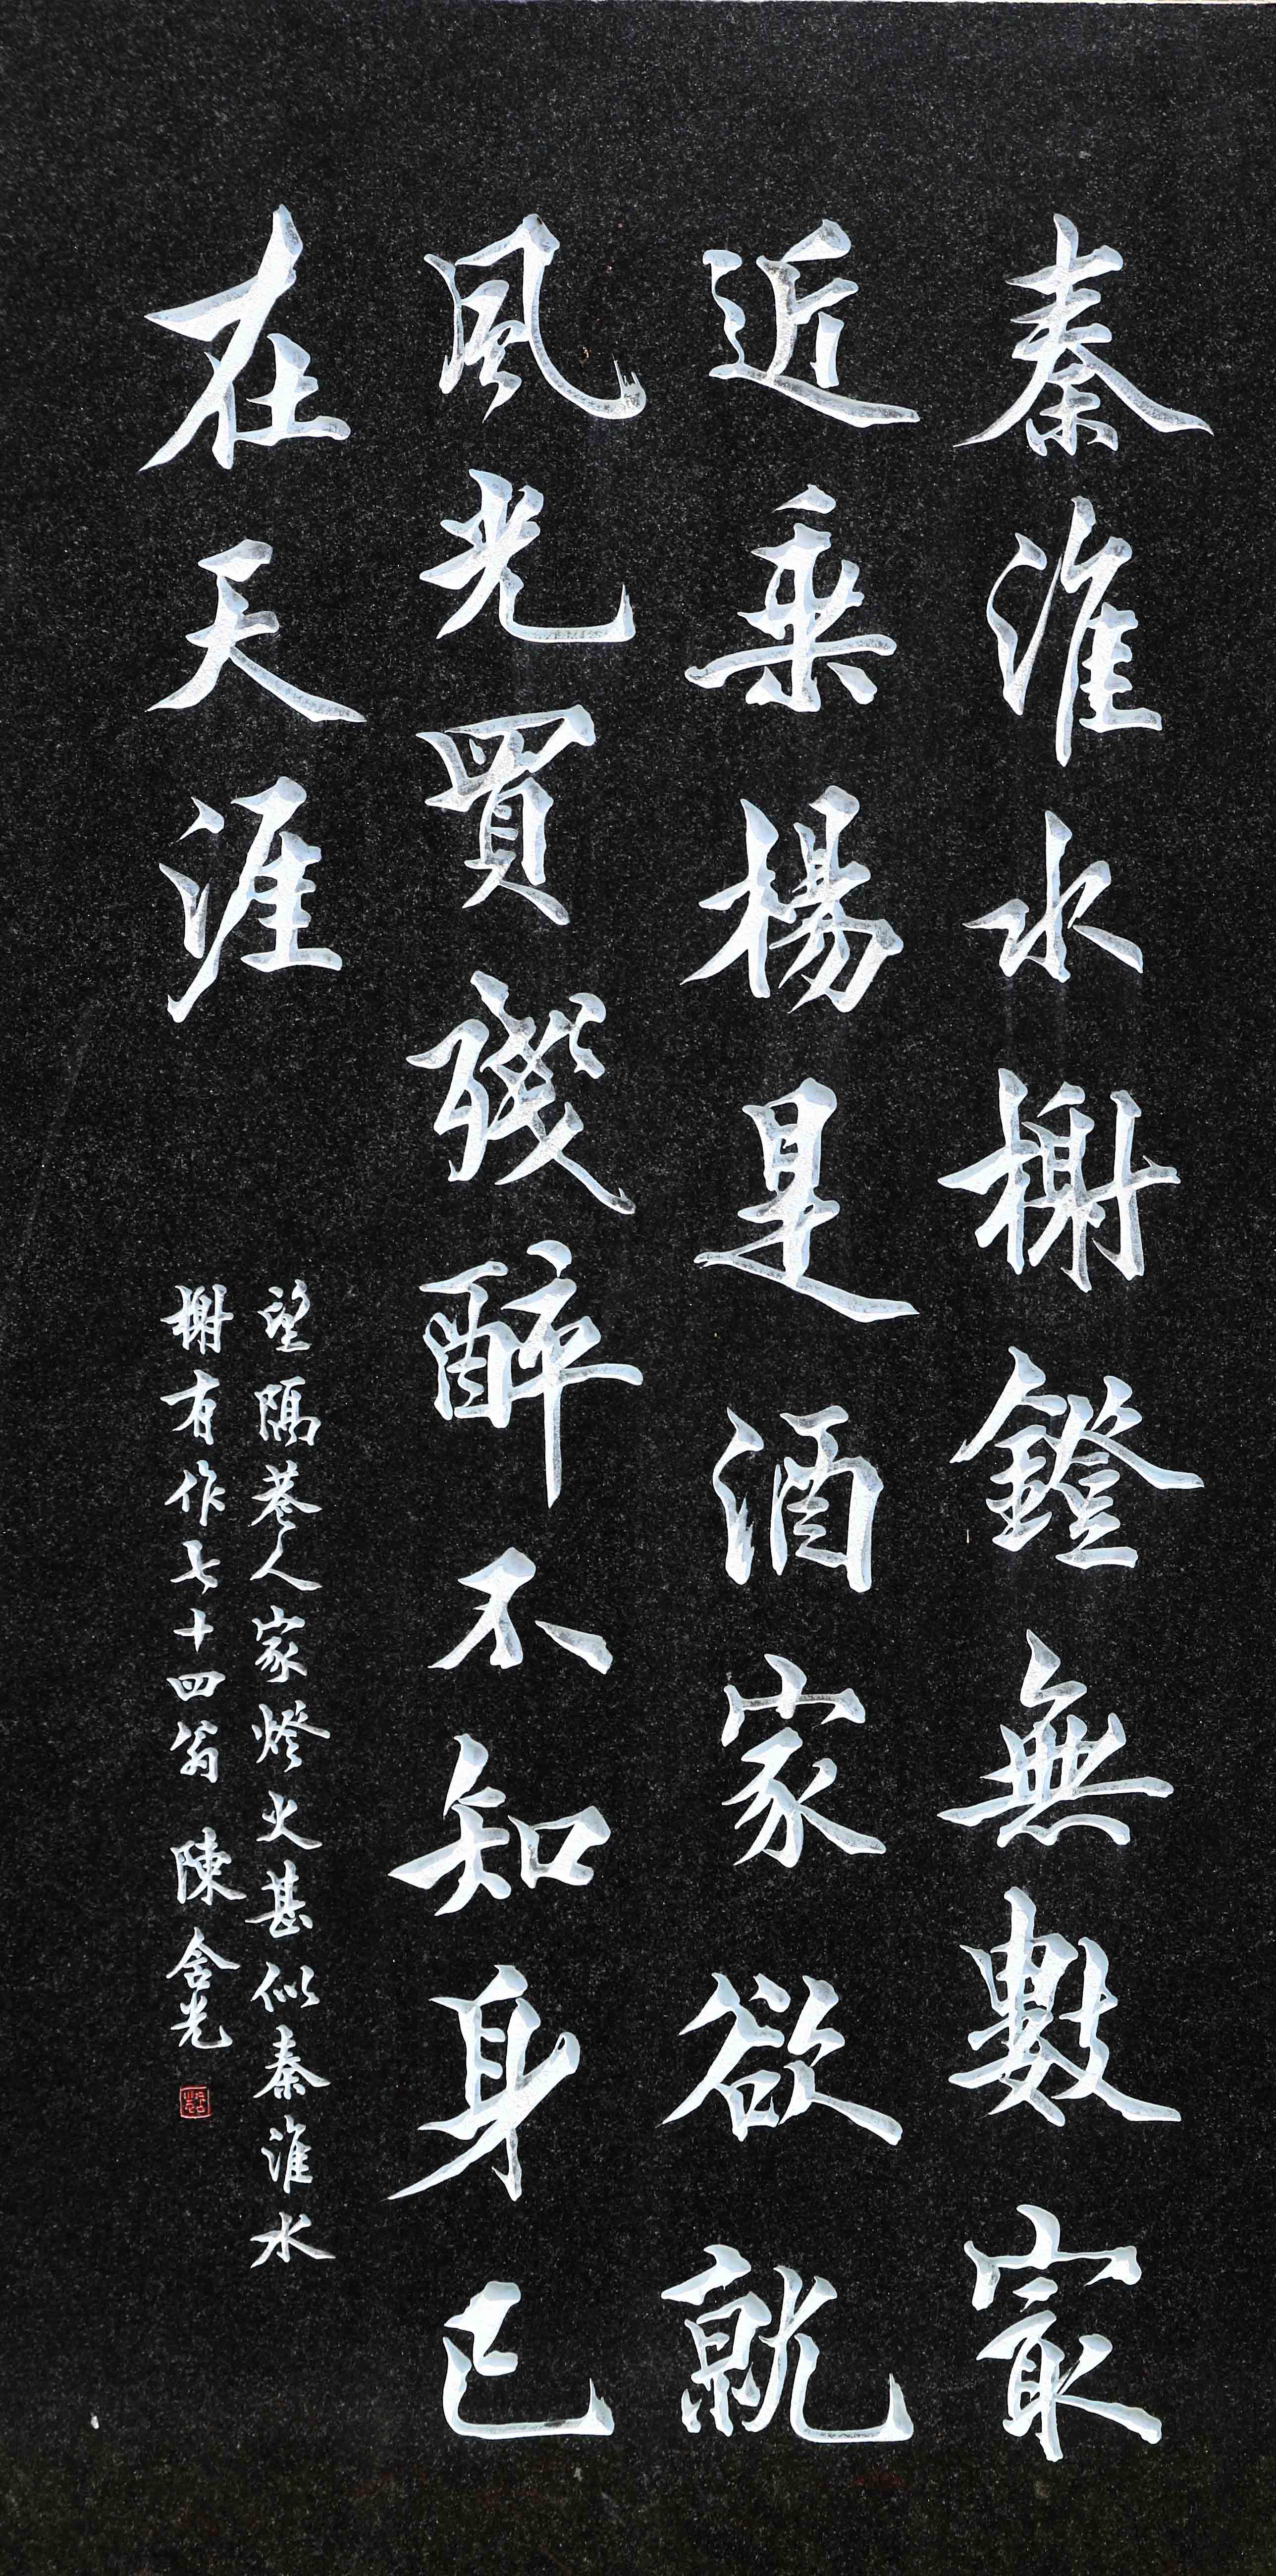 秦淮水榭鐙無數冣
近垂楊是酒家欲就
風光買殘醉不知身已
在天涯
望隔巷人家燈火甚似秦淮水
榭有作七十四翁 陳含光